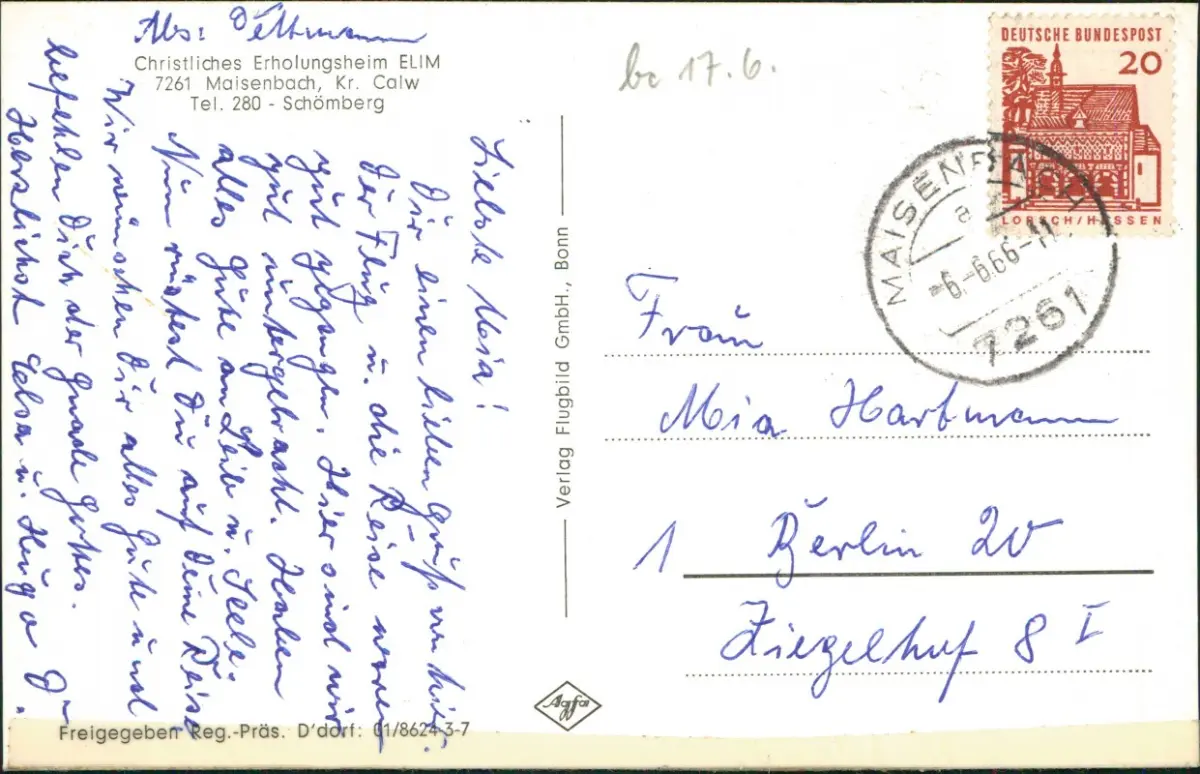 Abs: Dettmann
Christliches Erholungsheim ELIM
7261 Maisenbach, Kr. Calw
Tel. 280 - Schömberg
Liebste Mia!
Dir einen lieben Gruß von hier.
Der Flug u. die Reise waren
gut gegangen. Hier sind wir
gut untergebracht. Haben
alles Gute an Leib u. Seele.
Nun rüstest Du auf Deine Reise
Wir wünschen Dir alles Gute und
befehlen Dich der Gnade Gottes.
Herzlichst Elsa u. Hugo D.
Freigegeben Reg.-Präs. D'dorf: 01/8624-3-7
Verlag Flugbild GmbH., Bonn
Agfa
be 17.6.
DEUTSCHE BUNDESPOST
20
LORSCH/HESSEN
MAISENBACH
a
-6.-6.66-11
7261
Frau
Mia Hartmann
1 Berlin 20
Ziegelhof 8 I